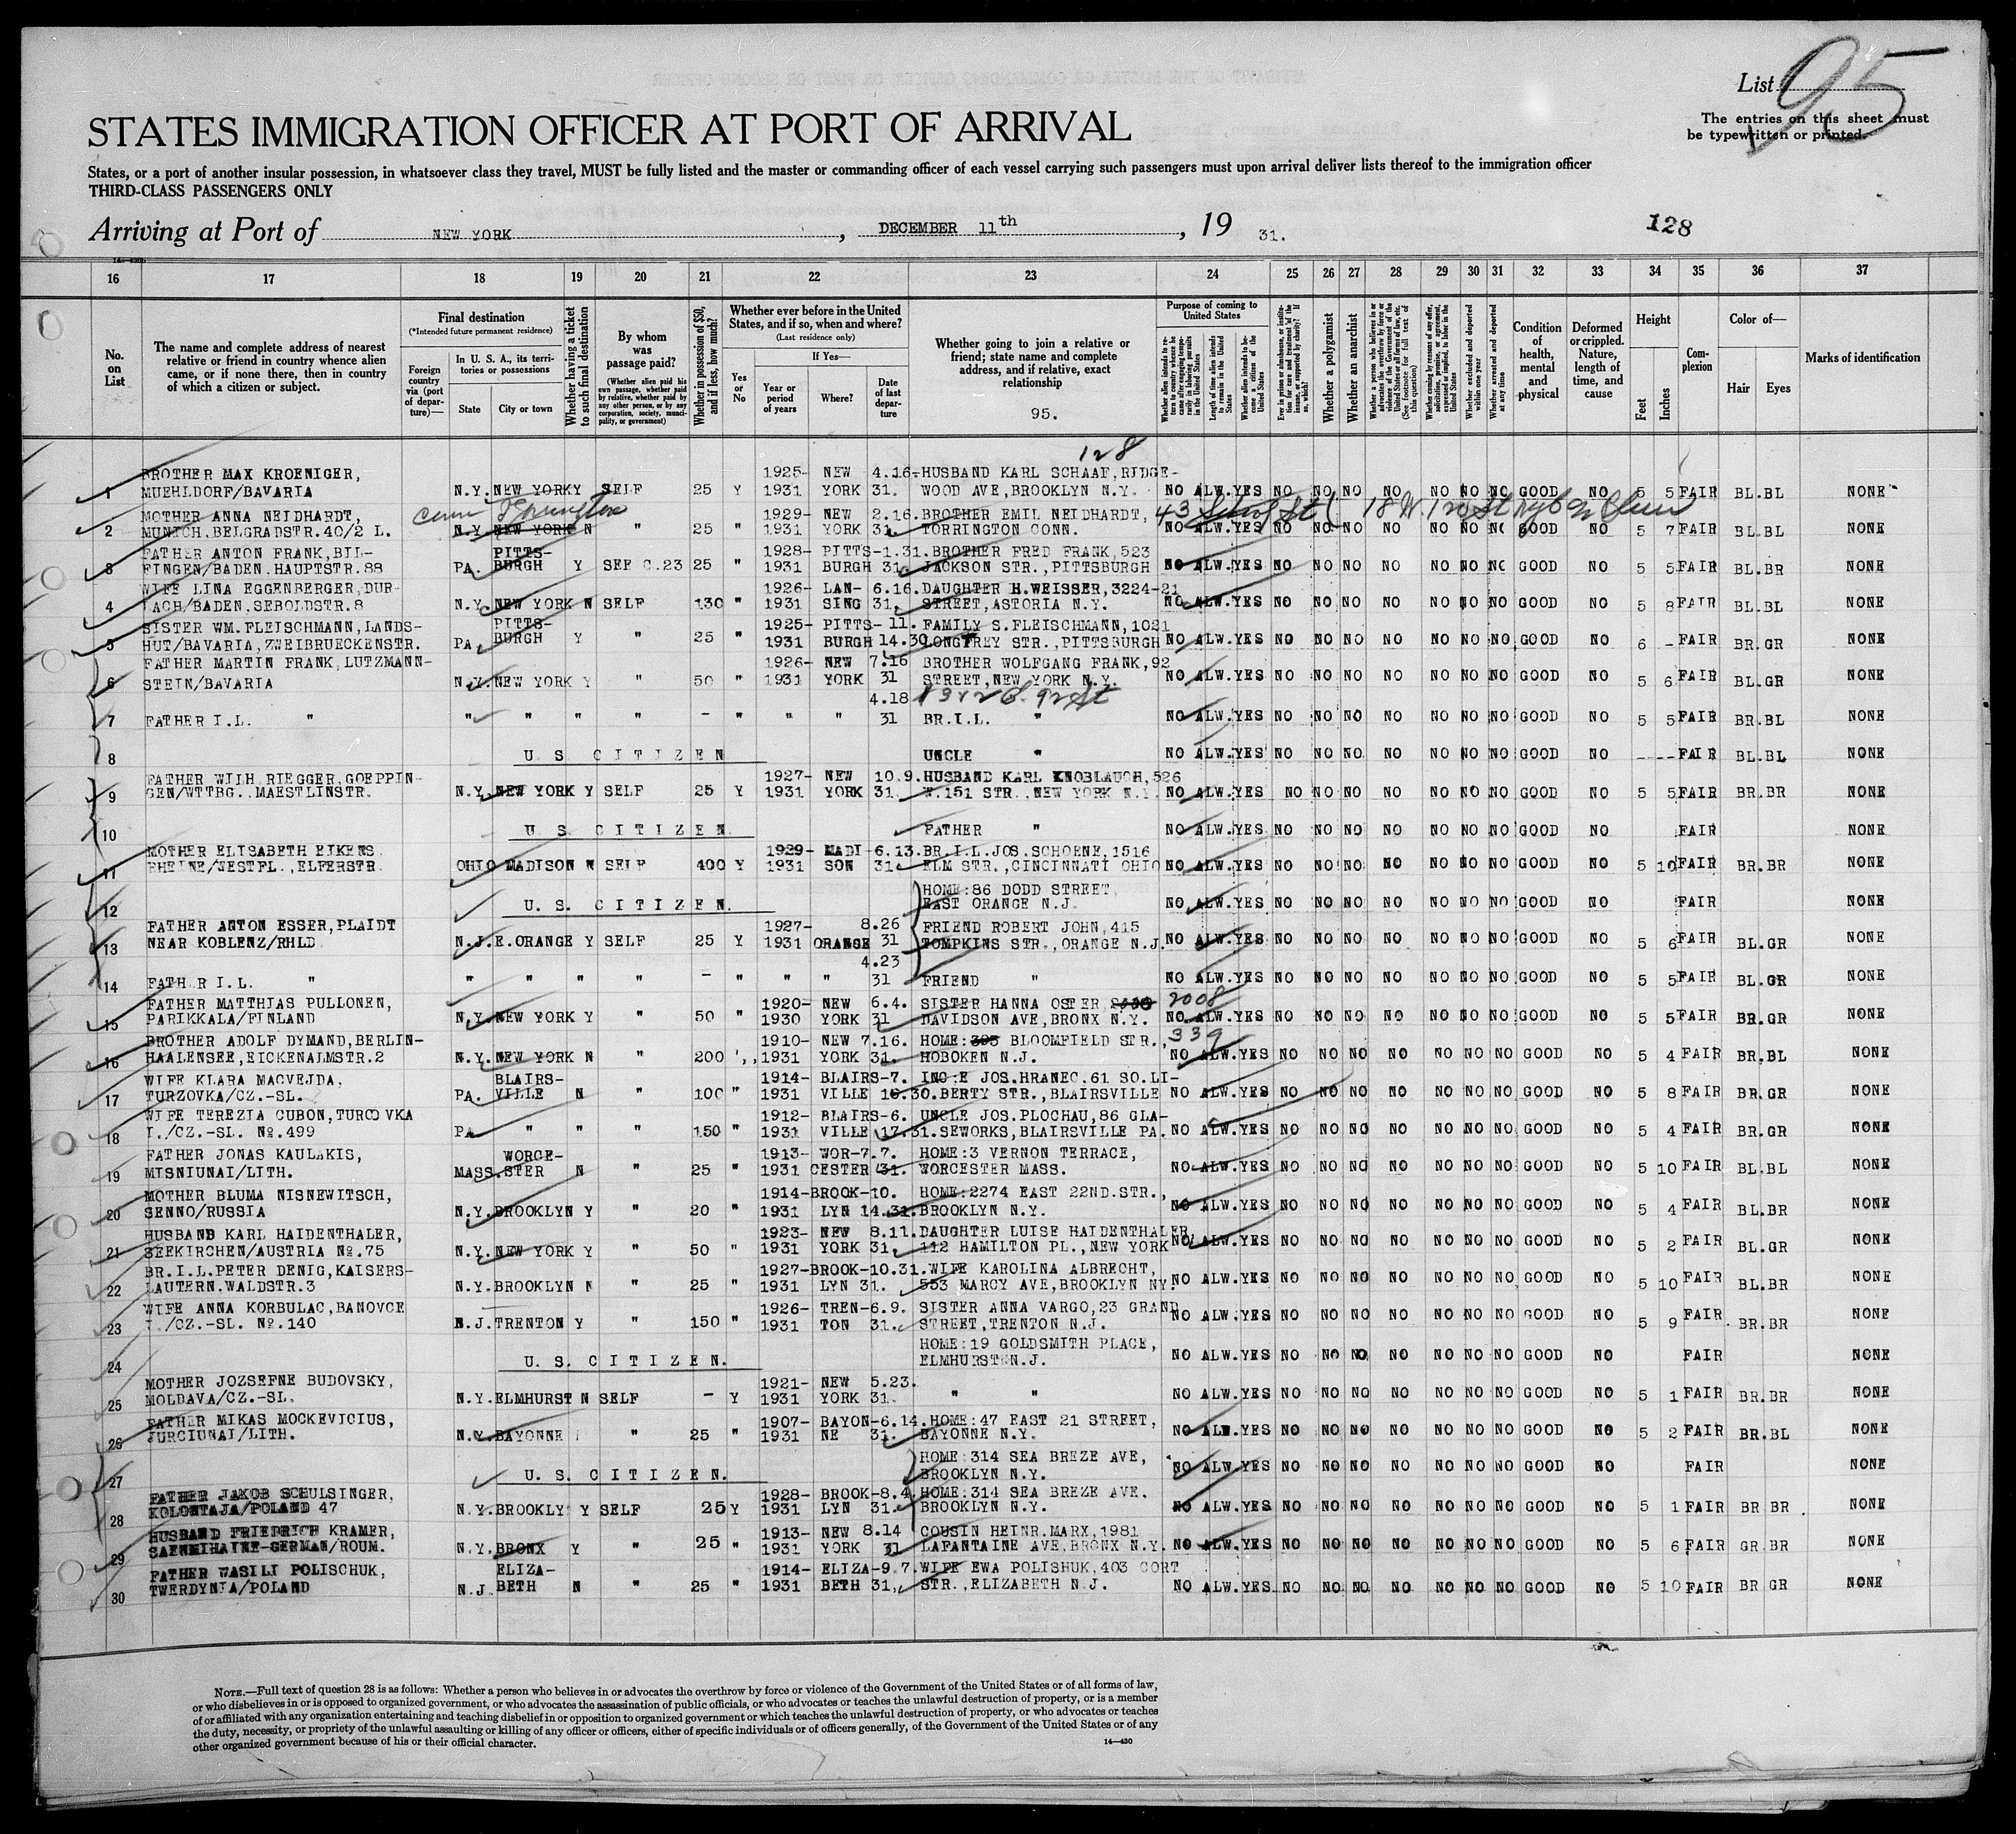 List 95
The entries on this sheet must
be typewritten or printed.
STATES IMMIGRATION OFFICER AT PORT OF ARRIVAL
States, or a port of another insular possession, in whatsoever class they travel, MUST be fully listed and the master or commanding officer of each vessel carrying such passengers must upon arrival deliver lists thereof to the immigration officer
THIRD-CLASS PASSENGERS ONLY
Arriving at Port of NEW YORK, DECEMBER 11th, 19 31.
128
16 17 18 19 20 21 22 23 24 25 26 27 28 29 30 31 32 33 34 35 36 37
No. on List
The name and complete address of nearest relative or friend in country whence alien came, or if none there, then in country of which a citizen or subject.
Final destination
(*Intended future permanent residence)
Foreign country via (port of departure)—
In U. S. A., its territories or possessions
State City or town
Whether having a ticket to such final destination
By whom was passage paid?
(Whether alien paid his own passage, whether paid by relative, whether paid by any other person, or by any corporation, society, municipality, or government)
Whether in possession of $50, and if less, how much?
Whether ever before in the United States, and if so, when and where?
(Last residence only)
Yes or No
If Yes—
Year or period of years
Where?
Date of last departure
Whether going to join a relative or friend; state name and complete address, and if relative, exact relationship
95.
Purpose of coming to United States
Whether alien intends to return to country whence he came after engaging temporarily in laboring pursuits in the United States
Length of time alien intends to remain in the United States
Whether alien intends to become a citizen of the United States
Ever in prison or almshouse, or institution for care and treatment of the insane, or supported by charity? If so, which?
Whether a polygamist
Whether an anarchist
Whether a person who believes in or advocates the overthrow by force or violence of the Government of the United States or all forms of law, etc. (See footnote for full text of this question)
Whether coming by reason of any offer, solicitation, promise, or agreement, expressed or implied, to labor in the United States
Whether excluded and deported within one year
Whether arrested and deported at any time
Condition of health, mental and physical
Deformed or crippled. Nature, length of time, and cause
Height
Feet Inches
Complexion
Color of—
Hair Eyes
Marks of identification
128
BROTHER MAX KROENIGER, 1925- NEW 4.16. HUSBAND KARL SCHAAF, RIDGE-
1 MUEHLDORF/BAVARIA N.Y. NEW YORK Y SELF 25 Y 1931 YORK 31. WOOD AVE, BROOKLYN N.Y. NO ALW. YES NO NO NO NO NO NO NO GOOD NO 5 5 FAIR BL. BL NONE
MOTHER ANNA NEIDHARDT, 1929- NEW 2.16. BROTHER EMIL NEIDHARDT, 43
2 MUNICH, BELGRADSTR. 40/2 L. N.Y. NEW YORK N " 25 " 1931 YORK 31. TORRINGTON CONN. NO ALW. YES NO NO NO NO NO NO NO GOOD NO 5 7 FAIR BL. BL NONE
FATHER ANTON FRANK, BIL- PITTS- 1928- PITTS-1.31. BROTHER FRED FRANK, 523
3 FINGEN/BADEN. HAUPTSTR. 88 PA. BURGH Y SEE C.23 25 " 1931 BURGH 31. JACKSON STR., PITTSBURGH NO ALW. YES NO NO NO NO NO NO NO GOOD NO 5 5 FAIR BL. BR NONE
WIFE LINA EGGENBERGER, DUR- 1926- LAN- 6.16. DAUGHTER H. WEISSER, 3224-21
4 LACH/BADEN, SEBOLDSTR. 8 N.Y. NEW YORK N SELF 130 " 1931 SING 31. STREET, ASTORIA N.Y. NO ALW. YES NO NO NO NO NO NO NO GOOD NO 5 8 FAIR BL. BL NONE
SISTER WM. FLEISCHMANN, LANDS- PITTS- 1925- PITTS- 11. FAMILY S. FLEISCHMANN, 1021
5 HUT/BAVARIA, ZWEIBRUECKENSTR. PA. BURGH Y " 25 " 1931 BURGH 14.30 LONGFREY STR., PITTSBURGH NO ALW. YES NO NO NO NO NO NO NO GOOD NO 6 - FAIR BR. GR NONE
FATHER MARTIN FRANK, LUTZMANN- 1926- NEW 7.16 BROTHER WOLFGANG FRANK, 92
6 STEIN/BAVARIA N.Y. NEW YORK Y " 50 " 1931 YORK 31 STREET, NEW YORK N.Y. NO ALW. YES NO NO NO NO NO NO NO GOOD NO 5 6 FAIR BL. GR NONE
4.18
7 FATHER I.L. " " " " " - " " " 31 BR. I.L. " NO ALW. YES NO NO NO NO NO NO NO GOOD NO 5 5 FAIR BR. BL NONE
8 U. S. CITIZEN UNCLE " NO ALW. YES NO NO NO NO NO NO NO GOOD NO ---- FAIR BL. BL NONE
FATHER WILH. RIEGGER, GOEPPIN- 1927- NEW 10.9. HUSBAND KARL KNOBLAUCH, 526
9 GEN/WTTBG., MAESTLINSTR. N.Y. NEW YORK Y SELF 25 Y 1931 YORK 31. W. 151 STR., NEW YORK N.Y. NO ALW. YES NO NO NO NO NO NO NO GOOD NO 5 5 FAIR BR. BR NONE
10 U. S. CITIZEN FATHER " NO ALW. YES NO NO NO NO NO NO NO GOOD NO FAIR NONE
MOTHER ELISABETH EIKENS 1929- MADI-6.13. BR. I.L. JOS. SCHOENE, 1516
11 RHEINE/WESTFL., ELFERSTR. OHIO MADISON N SELF 400 Y 1931 SON 31. ELM STR., CINCINNATI OHIO NO ALW. YES NO NO NO NO NO NO NO GOOD NO 5 10 FAIR BR. BR NONE
HOME: 86 DODD STREET,
12 U. S. CITIZEN. EAST ORANGE N.J. NO ALW. YES NO NO NO NO NO NO NO GOOD NO FAIR NONE
FATHER ANTON ESSER, PLAIDT 1927- 8.26 FRIEND ROBERT JOHN, 415
13 NEAR KOBLENZ/RHLD N.J. E. ORANGE Y SELF 25 Y 1931 ORANGE 31 TOMPKINS STR., ORANGE N.J. NO ALW. YES NO NO NO NO NO NO NO GOOD NO 5 6 FAIR BL. GR NONE
4.23
14 FATH R I.L. " " " " " - " " " 31 FRIEND " NO ALW. YES NO NO NO NO NO NO NO GOOD NO 5 5 FAIR BL. GR NONE
FATHER MATTHIAS PULLONEN, 1920- NEW 6.4. SISTER HANNA OSTER, 2008
15 PARIKKALA/FINLAND N.Y. NEW YORK Y " 50 " 1930 YORK 31 DAVIDSON AVE, BRONX N.Y. NO ALW. YES NO NO NO NO NO NO NO GOOD NO 5 5 FAIR BR. GR NONE
BROTHER ADOLF DYMAND, BERLIN- 1910- NEW 7.16. HOME: BLOOMFIELD STR., 339
16 HAALENSEE, EICKENALMSTR. 2 N.Y. NEW YORK N " 200 " 1931 YORK 31. HOBOKEN N.J. NO ALW. YES NO NO NO NO NO NO NO GOOD NO 5 4 FAIR BR. BL NONE
WIFE KLARA MACVEJDA, BLAIRS- 1914- BLAIRS-7. JOS. HRANEC. 61 SO. LI-
17 TURZOVKA/CZ.-SL. PA. VILLE N " 100 " 1931 VILLE 10.30. BERTY STR., BLAIRSVILLE NO ALW. YES NO NO NO NO NO NO NO GOOD NO 5 8 FAIR BR. GR NONE
WIFE TEREZIA CUBON, TURCOVKA 1912- BLAIRS-6. UNCLE JOS. PLOCHAU, 86 GLA-
18 I./CZ.-SL. No. 499 PA " " " 150 " 1931 VILLE 17.31. SEWORKS, BLAIRSVILLE PA. NO ALW. YES NO NO NO NO NO NO NO GOOD NO 5 4 FAIR BR. GR NONE
FATHER JONAS KAULAKIS, WORCE- 1913- WOR-7.7. HOME: 3 VERNON TERRACE,
19 MISNIUNAI/LITH. MASS. STER N " 25 " 1931 CESTER 31. WORCESTER MASS. NO ALW. YES NO NO NO NO NO NO NO GOOD NO 5 10 FAIR BL. BL NONE
MOTHER BLUMA NISNEWITSCH, 1914- BROOK-10. HOME: 2274 EAST 22ND. STR.,
20 SENNO/RUSSIA N.Y. BROOKLYN Y " 20 " 1931 LYN 14.31. BROOKLYN N.Y. NO ALW. YES NO NO NO NO NO NO NO GOOD NO 5 4 FAIR BL. BR NONE
HUSBAND KARL HAIDENTHALER, 1923- NEW 8.11. DAUGHTER LUISE HAIDENTHALER,
21 SEEKIRCHEN/AUSTRIA No. 75 N.Y. NEW YORK Y " 50 " 1931 YORK 31. 112 HAMILTON PL., NEW YORK NO ALW. YES NO NO NO NO NO NO NO GOOD NO 5 2 FAIR BL. GR NONE
BR. I.L. PETER DENIG, KAISERS- 1927- BROOK-10.31. WIFE KAROLINA ALBRECHT,
22 LAUTERN. WALDSTR. 3 N.Y. BROOKLYN N " 25 " 1931 LYN 31. 553 MARCY AVE, BROOKLYN NY. NO ALW. YES NO NO NO NO NO NO NO GOOD NO 5 10 FAIR BL. BR NONE
WIFE ANNA KORBULAC, BANOVCE 1926- TREN-6.9. SISTER ANNA VARGO, 23 GRAND
23 I./CZ.-SL. No. 140 N.J. TRENTON Y " 150 " 1931 TON 31. STREET, TRENTON N.J. NO ALW. YES NO NO NO NO NO NO NO GOOD NO 5 9 FAIR BR. BR NONE
HOME: 19 GOLDSMITH PLACE,
24 U. S. CITIZEN. ELMHURST N.J. NO ALW. YES NO NO NO NO NO NO NO GOOD NO FAIR NONE
MOTHER JOZSEFNE BUDOVSKY, 1921- NEW 5.23.
25 MOLDAVA/CZ.-SL. N.Y. ELMHURST N SELF - Y 1931 YORK 31. " " NO ALW. YES NO NO NO NO NO NO NO GOOD NO 5 1 FAIR BR. BR NONE
FATHER MIKAS MOCKEVICIUS, 1907- BAYON-6.14. HOME: 47 EAST 21 STREET,
26 JURCIUNAI/LITH. N.Y. BAYONNE " 25 " 1931 NE 31. BAYONNE N.Y. NO ALW. YES NO NO NO NO NO NO NO GOOD NO 5 2 FAIR BR. BL NONE
HOME: 314 SEA BREZE AVE,
27 U. S. CITIZEN. BROOKLYN N.Y. NO ALW. YES NO NO NO NO NO NO NO GOOD NO FAIR NONE
FATHER JAKOB SCHULSINGER, 1928- BROOK-8.4. HOME: 314 SEA BREZE AVE.
28 KOLONTAJA/POLAND 47 N.Y. BROOKLY Y SELF 25 Y 1931 LYN 31. BROOKLYN N.Y. NO ALW. YES NO NO NO NO NO NO NO GOOD NO 5 1 FAIR BR BR NONE
HUSBAND FRIEDRICH KRAMER, 1913- NEW 8.14 COUSIN HEINR. MARX, 1981
29 SAENMIHAINE-GERMAN/ROUM. N.Y. BRONX Y " 25 " 1931 YORK 31 LAFANTAINE AVE, BRONX N.Y. NO ALW. YES NO NO NO NO NO NO NO GOOD NO 5 6 FAIR GR. BR NONE
FATHER WASILI POLISCHUK, ELIZA- 1914- ELIZA-9.7. WIFE EWA POLISHUK, 403 CORT
30 TWERDYNIA/POLAND N.J. BETH N " 25 " 1931 BETH 31. STR., ELIZABETH N.J. NO ALW. YES NO NO NO NO NO NO NO GOOD NO 5 10 FAIR BR GR NONE
NOTE.—Full text of question 28 is as follows: Whether a person who believes in or advocates the overthrow by force or violence of the Government of the United States or of all forms of law,
or who disbelieves in or is opposed to organized government, or who advocates the assassination of public officials, or who advocates or teaches the unlawful destruction of property, or is a member
of or affiliated with any organization entertaining and teaching disbelief in or opposition to organized government or which teaches the unlawful destruction of property, or who advocates or teaches
the duty, necessity, or propriety of the unlawful assaulting or killing of any officer or officers, either of specific individuals or of officers generally, of the Government of the United States or of any
other organized government because of his or their official character.
14—430